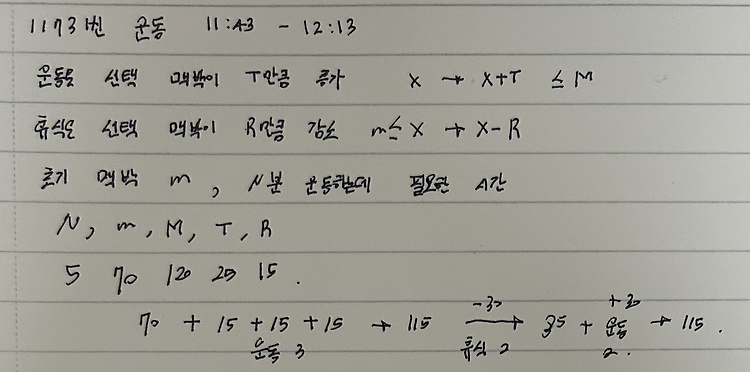 1173번 운동 11:43 - 12:13
운동을 선택 맥박이 T만큼 증가 X → X+T ≤ M
휴식을 선택 맥박이 R만큼 감소 m ≤ X → X-R
초기 맥박 m, N분 운동하는데 필요한 시간
N, m, M, T, R
5 70 120 25 15.
-30 +30
70 + 15 + 15 + 15 → 115 → 85 + 운동 → 115.
운동 3 휴식 2 2.